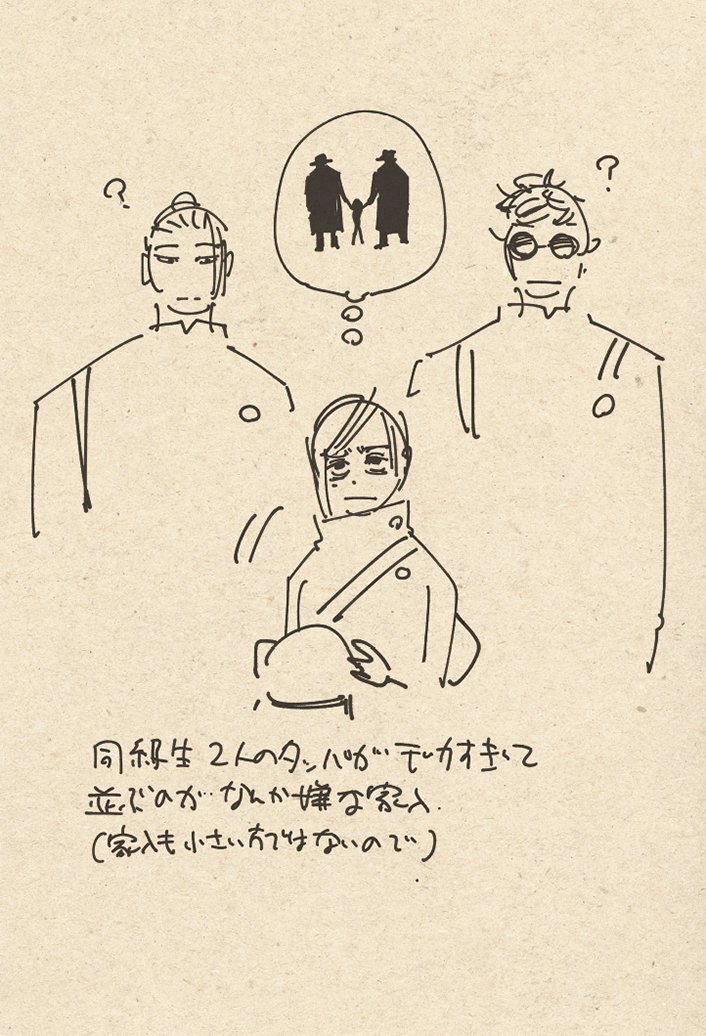 ?
?
同級生2人のタッパがデカすぎて
並ぶのがなんか嫌な家入.
(家入も小さい方ではないので)